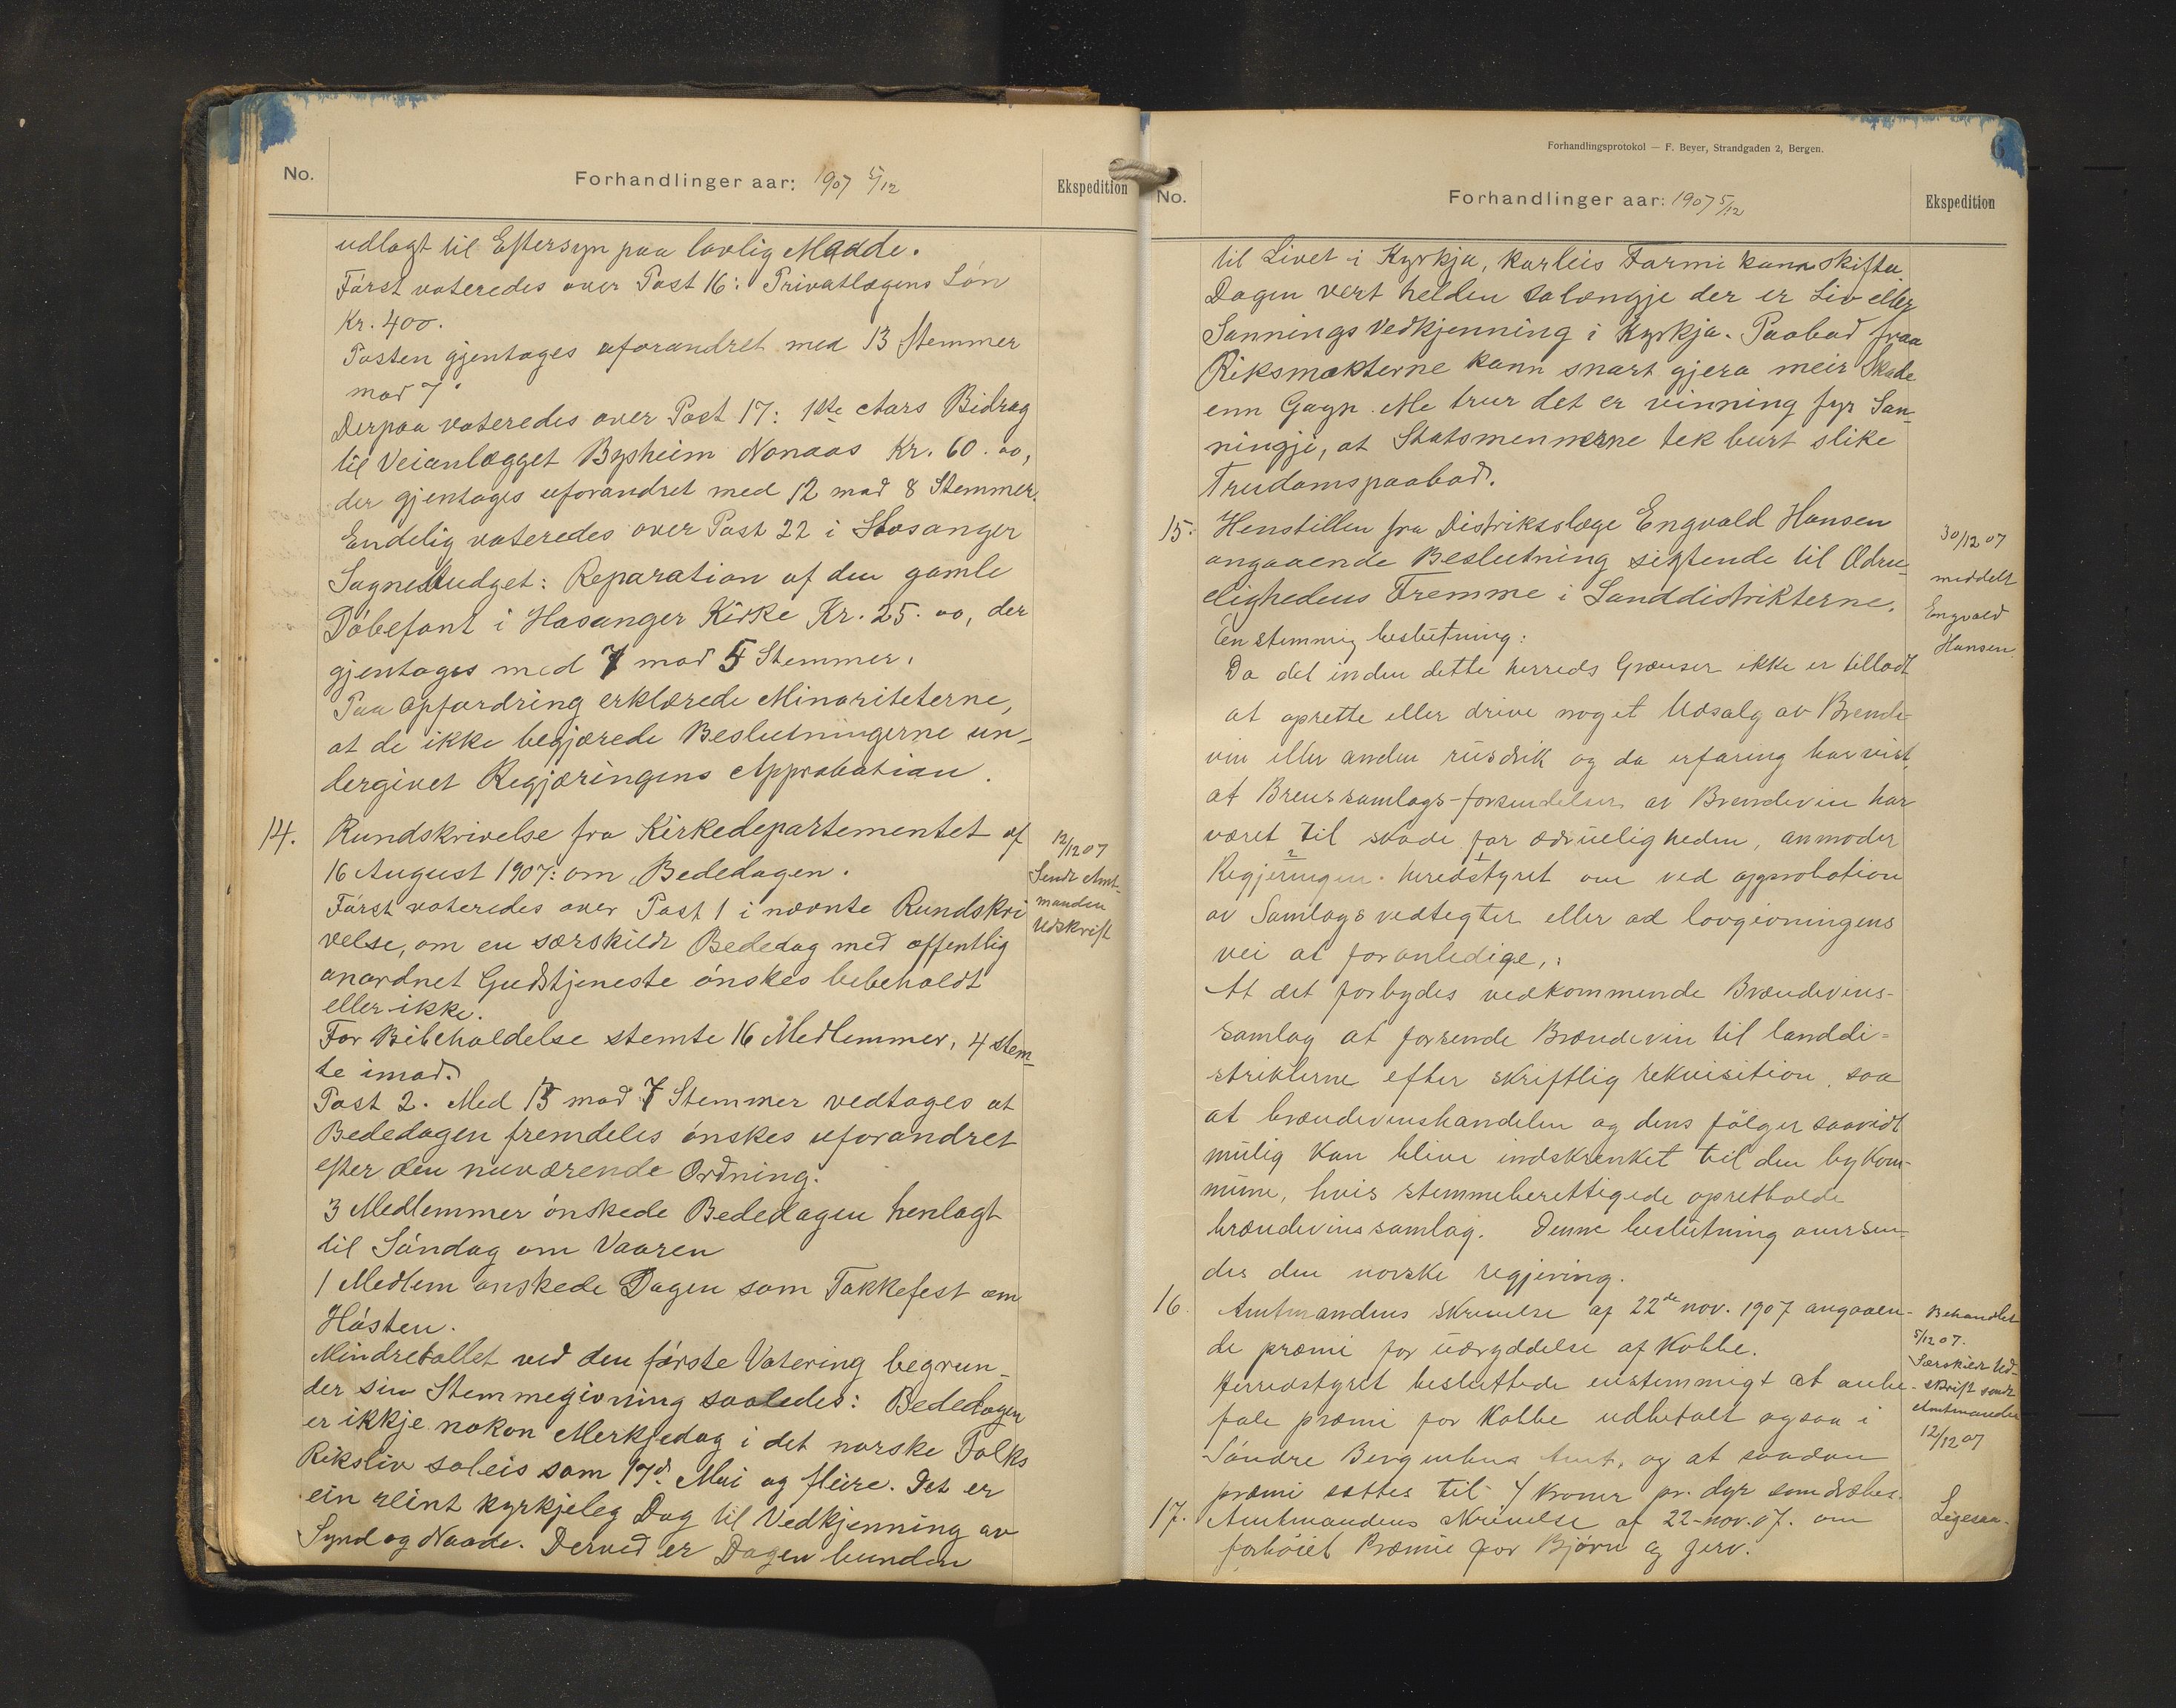 No.
Forhandlinger aar: 1907 5/12
Ekspedition
udlagt til Eftersyn paa lovlig Maade.
Först voteredes over Post 16: Privatlægens Lön
Kr. 400.
Posten gjentages uforandret med 13 Stemmer
mod 7.
Derpaa voteredes over Post 17: 1ste Aars Bidrag
til Veianlægget Bysheim Nonaas Kr. 60.00,
der gjentages uforandret med 12 mod 8 Stemmer.
Endelig voteredes over Post 22 i Hosanger
Sognebudget: Reparation af den gamle
Döbefont i Hosanger Kirke Kr. 25.00, der
gjentages med 7 mod 5 Stemmer.
Paa Opfordring erklærede Minoriteterne,
at de ikke begjærede Beslutningerne un-
dergivet Regjæringens Approbation.
14. Rundskrivelse fra Kirkedepartementet af
16 August 1907: om Bededagen.
Först voteredes over Post 1 i nævnte Rundskri
velse, om en særskildt Bededag med offentlig
anordnet Gudstjeneste önskes bebeholdt
eller ikke.
For Bibeholdelse stemte 16 Medlemmer, 4 stem-
te imod.
Post 2. Med 13 mod 7 Stemmer vedtages at
Bededagen fremdeles önskes uforandret
efter den nuværende Ordning.
3 Medlemmer önskede Bededagen henlagt
til Söndag om Vaaren
1 Medlem önskede Dagen som Takkefest om
Hösten.
Mindretallet ved den förste Votering begrun-
der sin Stemmegivning saaledes: Bededagen
er ikkje nokon Merkjedag i det norske Folks
Riksliv soleis som 17d. Mai og fleire. Det er
ein reint kyrkjeleg Dag til Vedkjenning av
Synd og Naade. Derved er Dagen bunden
12/12 07
Sendt Amt-
manden
Udskrift
Forhandlingsprotokol — F. Beyer, Strandgaden 2, Bergen.
6
No.
Forhandlinger aar: 1907 5/12
Ekspedition
til Livet i Kyrkja, korleis Formi kann skifta
Dagen vert helden solengje der er Liv eller
Sannings Vedkjenning i Kyrkja. Paabod fraa
Riksmakterne kann snart gjera meir Skade
enn Gagn. Me trur det er vinning fyr San-
ningji, at Statsmennerne tek burt slike
Trudomspaabod.
15. Henstillen fra Distriktslæge Engvald Hansen
angaaende Beslutning sigtende til Ædru-
elighedens Fremme i Landdistrikterne.
Enstemmig beslutning:
Da det inden dette herreds Grænser ikke er tilladt
at oprette eller drive noget Udsalg av Brende-
vin eller anden rusdrik og da erfaring har vist,
at Brenssamlags-forsendelser av Brendevin har
været til skade for ædrueligheden, anmoder
2 1
Regjeringen herredstyret om ved approbation
av Samlagsvedtegter eller ad lovgivningens
vei at foranledige,:
At det forbydes vedkommende Brændevins-
samlag at forsende Brændevin til landdi-
strikterne efter skriftlig rekvisition, saa
at brændevinshandelen og dens fölger saavidt
mulig kan blive indskrenket til den bykom-
mune, hvis stemmeberettigede opretholde
brændevinssamlag. Denne beslutning oversen-
des den norske regjering.
16. Amtmandens skrivelse af 22de nov. 1907 angaaen-
de præmi for udryddelse af Kobbe.
Herredstyret besluttede enstemmigt at anbe-
fale præmi for Kobbe udbetalt ogsaa i
Söndre Bergenhus Amt, og at saadan
præmi sættes til 4 kroner pr. dyr som dræbes.
17. Amtmandens skrivelse af 22-nov. 07. om
forhöiet Præmie for Björn og Jerv.
30/12 07
meddelt
Engvald
Hansen.
Behandlet
5/12 07.
Særskildt Ud-
skrift sendt
Amtmanden
12/12 07
Ligesaa.